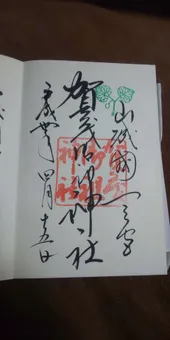 山城國一之宮
賀茂御祖神社
平成 四月十五日